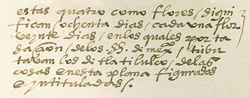 estas quatro como flores / signi
fican / ochenta dias / cada una flor
veynte dias / en los quales por ta
sacion / de los SS. de mexco / tribu
tavan los del titulo / de las
cosas en esta plana figurados
e intitulados /.